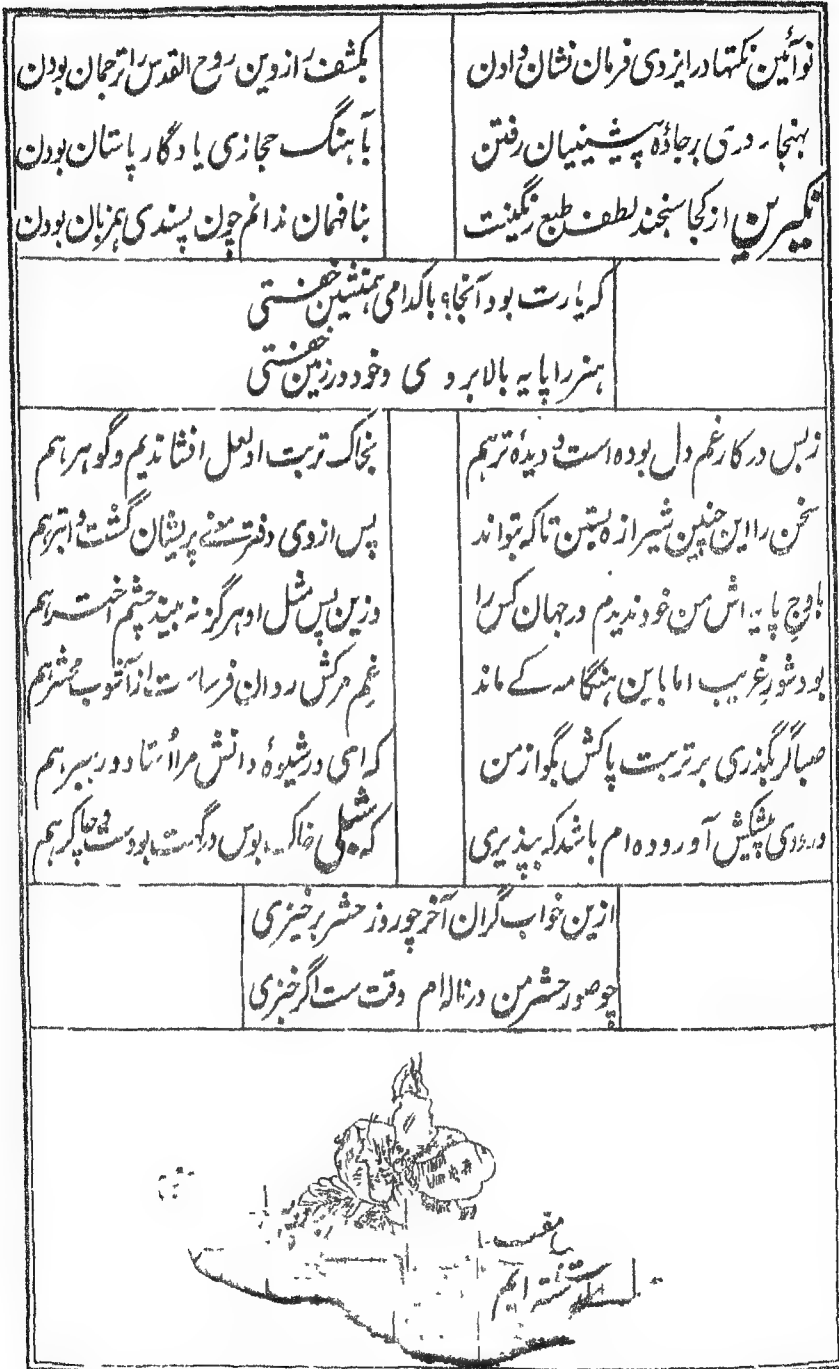 نوآئین نکتها در ایزدی فرمان نشان دادن بکشف راز دین روح القدس را ترجمان بودن
بهنجار دری بر جادهٔ پیشینیان رفتن بآهنگ حجازی یادگار پاستان بودن
نکیرین از کجا سنجند لطف طبع رنگینت بنافهمان ندانم چون پسندی همزبان بودن
که یارت بود آنجا؟ باکدامی همنشین خفتی
هنر را پایه بالابردی وخود در زمین خفتی
زبس در کار غم دل بوده است و دیدهٔ ترهم بخاک تربت او لعل افشاندیم وگوهر هم
سخن را این چنین شیرازه بستن تاکه بتواند پس از وی دفتر معنے پریشان گشت و ابترهم
باوج پایه اش من خود ندیدم در جهان کس را وزین پس مثل او هرگز نه بیند چشم اخترهم
بود شور غریب اما باین هنگامه کے ماند غم مرگش روان فرساست از آشوب محشرهم
صبا گر بگذری بر تربت پاکش بگو از من که ای در شیوهٔ دانش مرا استاد و رهبرهم
درودی پیشکش آورده ام باشد که بپذیری که شبلی خاک بوس درگهت بودست و چاکرهم
ازین خواب گران آخر چو روز حشر برخیزی
چو صور حشر من در ناله ام وقت ست اگر خیزی